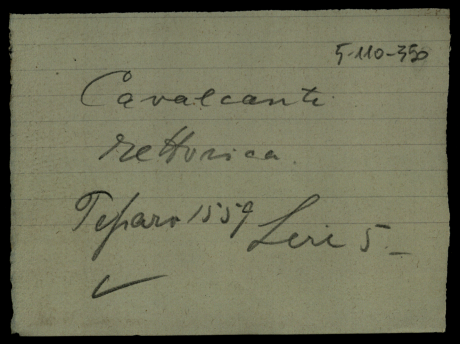 5-110-350
Cavalcanti
rettorica.
Pesaro 1559 Lire 5_